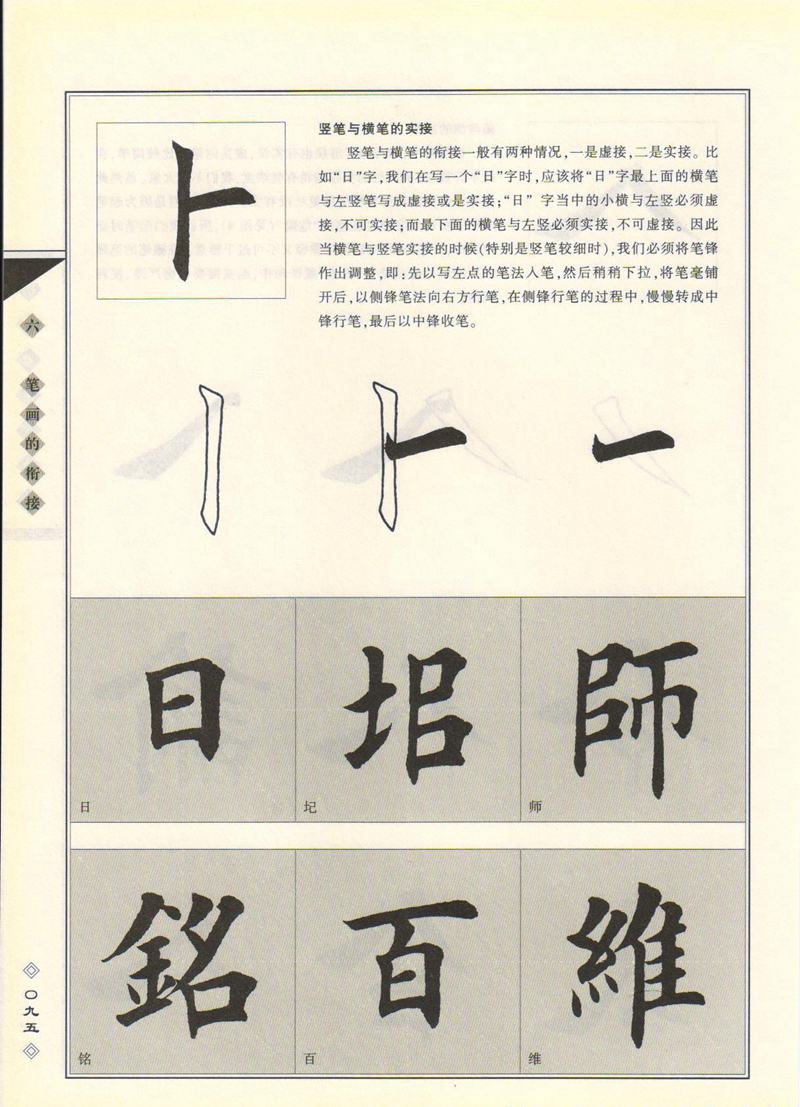 竖笔与横笔的实接
竖笔与横笔的衔接一般有两种情况,一是虚接,二是实接。比
如“日”字,我们在写一个“日”字时,应该将“日”字最上面的横笔
与左竖笔写成虚接或是实接;“日”字当中的小横与左竖必须虚
接,不可实接;而最下面的横笔与左竖必须实接,不可虚接。因此
当横笔与竖笔实接的时候(特别是竖笔较细时),我们必须将笔锋
作出调整,即:先以写左点的笔法入笔,然后稍稍下拉,将笔毫铺
开后,以侧锋笔法向右方行笔,在侧锋行笔的过程中,慢慢转成中
锋行笔,最后以中锋收笔。
六 笔画的衔接
日
圮
師
日
圮
师
銘
百
維
铭
百
维
〇九五